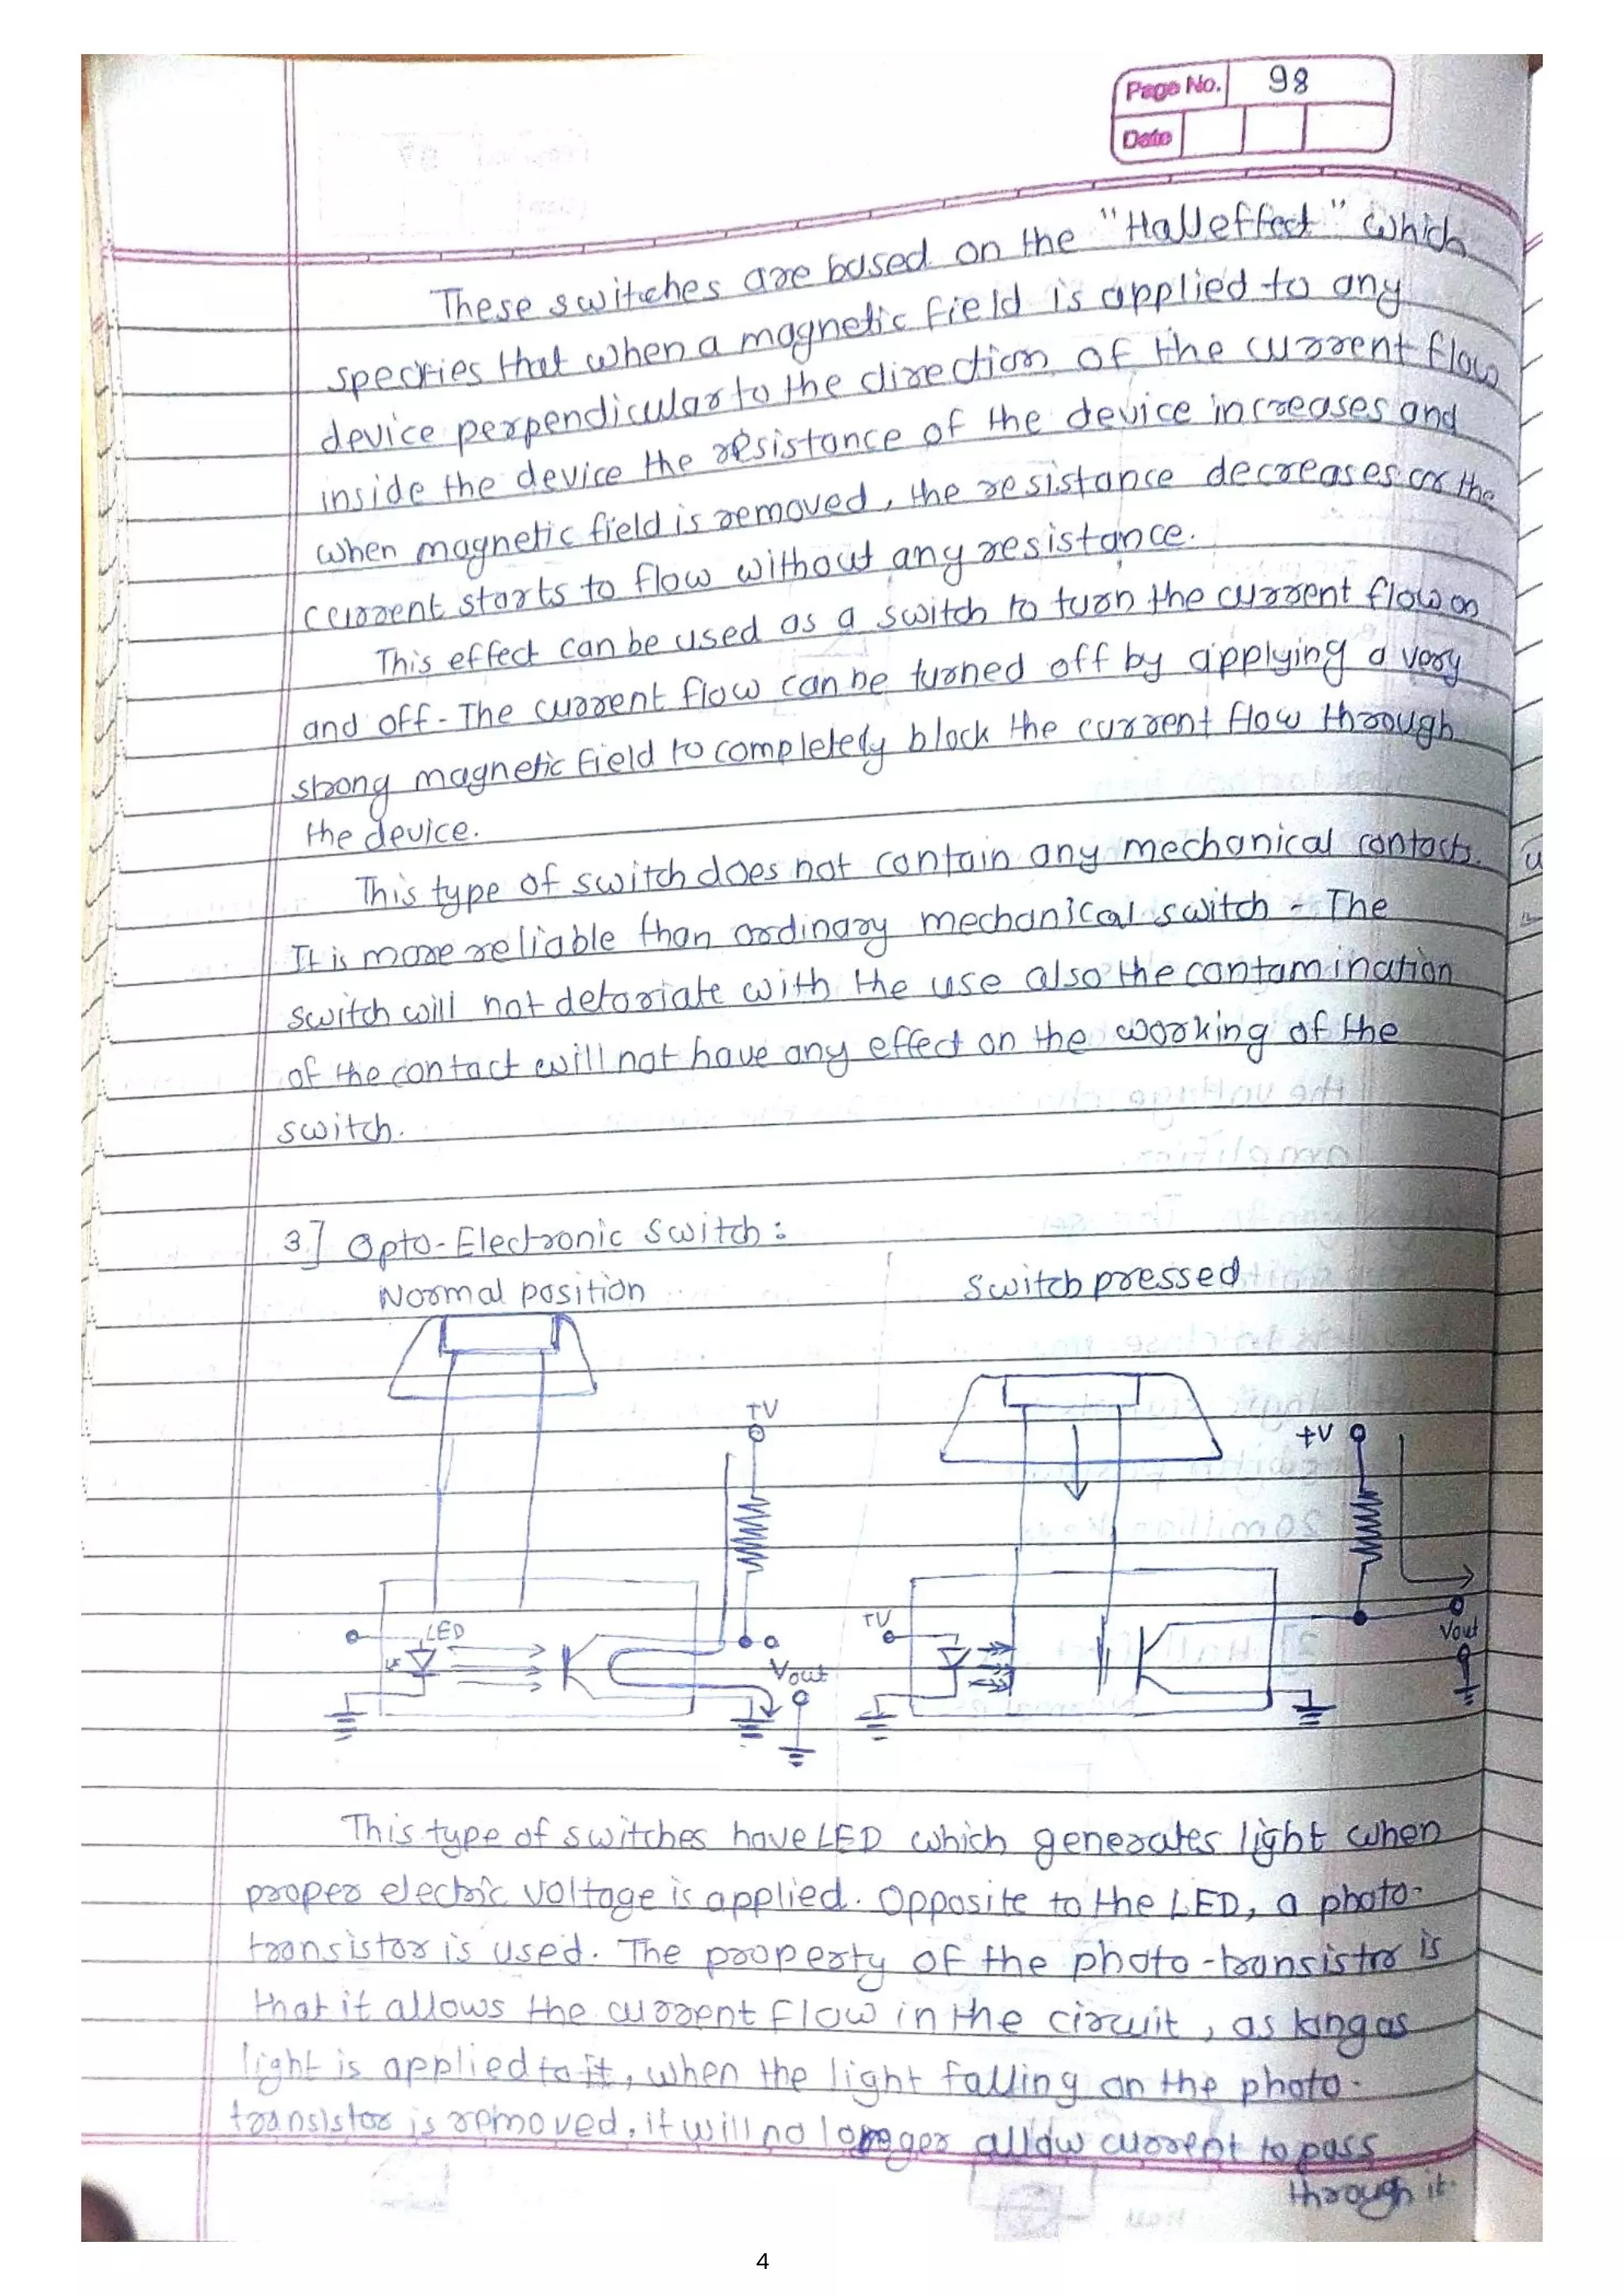 Page No. 98
Date
These switches are based on the "Hall effect" which
specifies that when a magnetic field is applied to any
device perpendicular to the direction of the current flow
inside the device the resistance of the device increases and
when magnetic field is removed, the resistance decreases or the
current starts to flow without any resistance.
This effect can be used as a switch to turn the current flow on
and off. The current flow can be turned off by applying a very
strong magnetic field to completely block the current flow through
the device.
This type of switch does not contain any mechanical contacts.
It is more reliable than ordinary mechanical switch. The
switch will not detoriate with the use also the contamination
of the contact will not have any effect on the working of the
switch.
3] Opto-Electronic Switch:
Normal position
Switch pressed
+V
+V
LED
+V
Vout
Vout
This type of switches have LED which generates light when
proper electric voltage is applied. Opposite to the LED, a photo-
transistor is used. The property of the photo-transistor is
that it allows the current flow in the circuit, as long as
light is applied to it, when the light falling on the photo-
transistor is removed, it will no longer allow current to pass
through it.
4